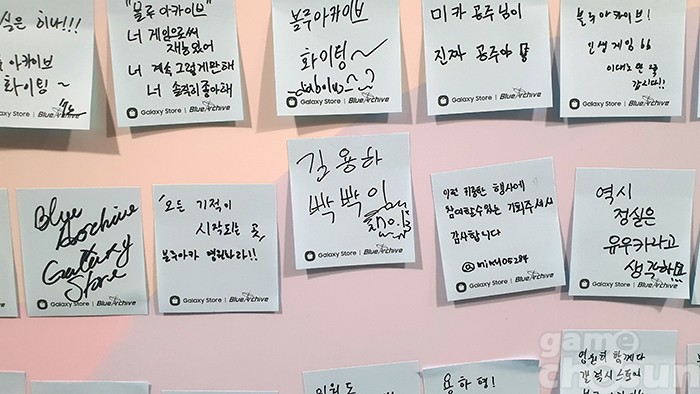 은 히나!!!
아카이브
화이팅~
Galaxy Store | BlueArchive
"블루 아카이브"
너 게임으로써
재능있어
너 계속 그렇게만 해
너 솔직히 좋아해
Galaxy Store | BlueArchive
블루아카이브
화이팅~
Galaxy Store | BlueArchive
미카 공주님이
진짜 공주야
Galaxy Store | BlueArchive
블루아카이브!
인생게임
이대로 쭉
갑시다!!
Galaxy Store | BlueArchive
Blue
Archive
Galaxy
Store
Galaxy Store | BlueArchive
"모든 기적이
시작되는 곳"
블루아카 영원하라!!
Galaxy Store | BlueArchive
길용하
빡빡이
Galaxy Store | BlueArchive
이런 귀중한 행사에
참여할수있는 기회주셔서
감사합니다
@mixu05284
Galaxy Store | BlueArchive
역시
정실은
유우카라고
생각해요
Galaxy Store | BlueArchive
용하형!
영원히 함께다
갤럭시스토어
game
chosun